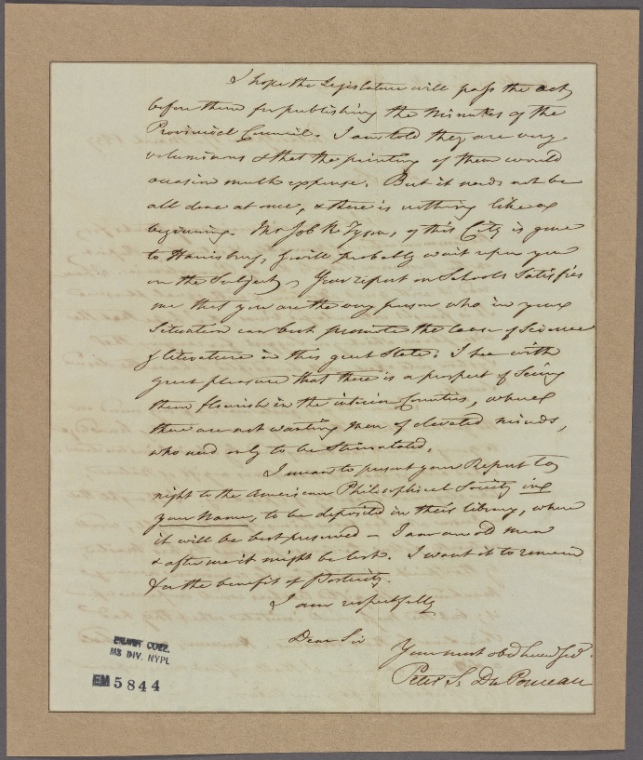 I hope the Legislature will pass the act
before them for publishing the Minutes of the
Provincial Council. I am told they are very
voluminous & that the printing of them would
occasion much expense. But it needs not be
all done at once, & there is nothing like a
beginning. Mr Job R Tyson, of this City is gone
to Harrisburg, & will probably wait upon you
on the Subject. Your report on Schools Satisfies
me that you are the very person who in your
Situation can best promote the cause of Science
& literature in this great State. I see with
great pleasure that there is a prospect of Seeing
them flourish in the interior Counties, where
there are not wanting men of elevated minds,
who need only to be Stimulated.
I mean to present your Report to
night to the American Philosophical Society in
your name, to be deposited in their library, where
it will be best preserved – I am an old man
& after me it might be lost. I want it to remain
for the benefit of Posterity.
I am respectfully
Dear Sir
Your most obd
Peter S. Du Ponceau
EMMET COLL.
MS DIV. NYPL
EM 5844